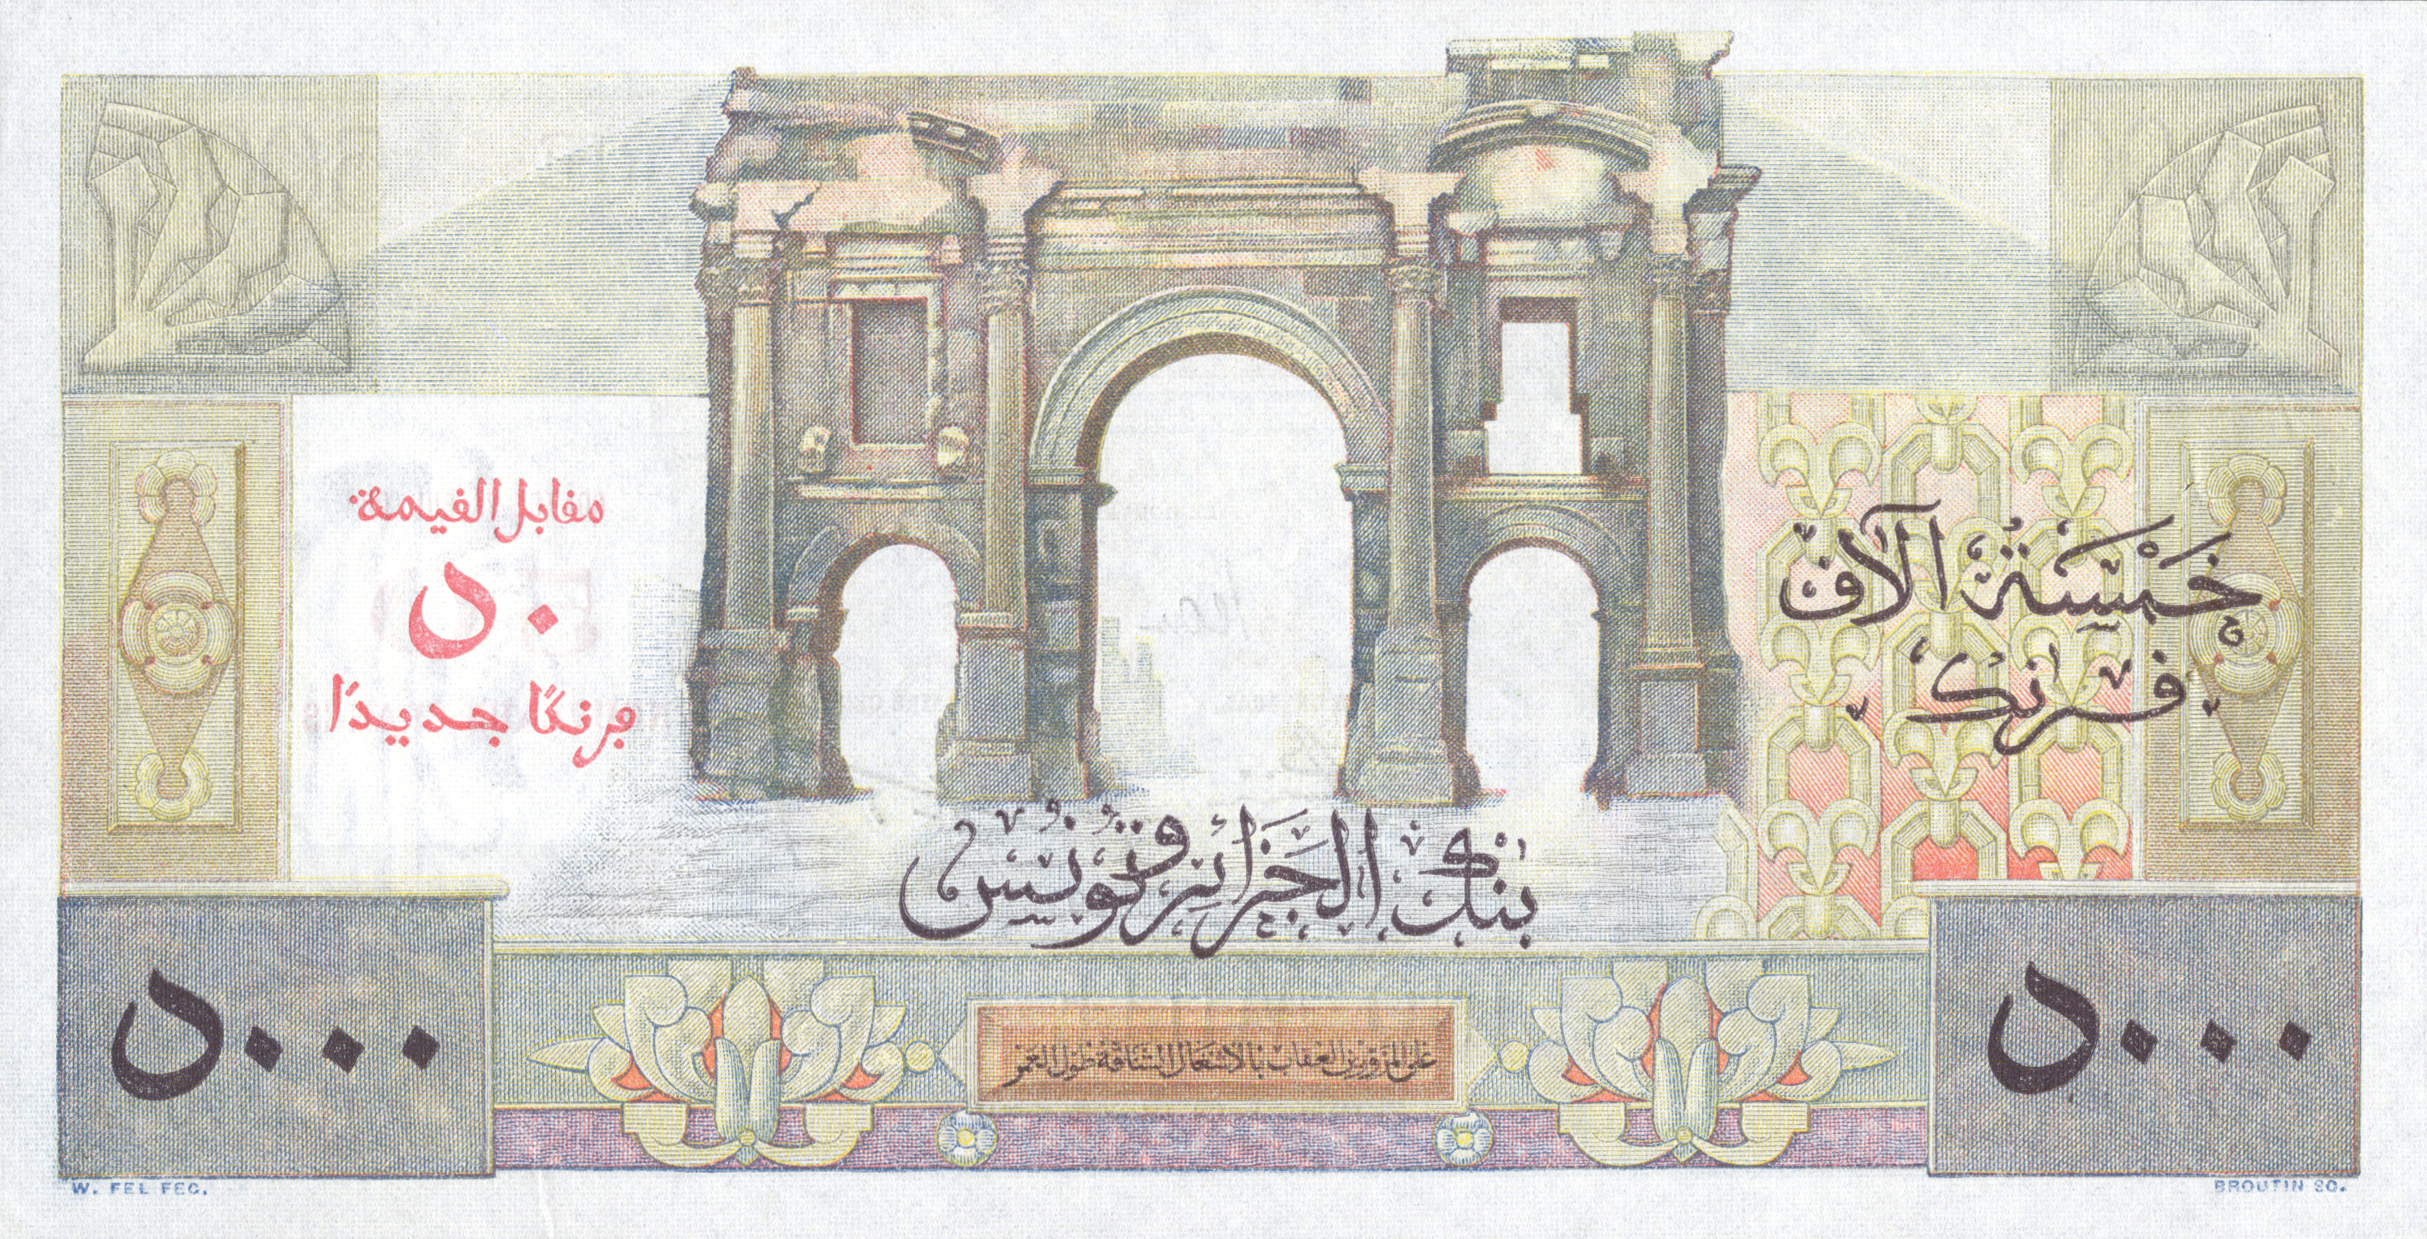 مقابل القيمة
٥٠
فرنكًا جديدًا
خَمْسَةُ آلَاف
فرنك
بنك الجَزائر وتُونِس
٥٠٠٠
على المزورين العقاب بالاشغال الشاقة طول العمر
٥٠٠٠
W. FEL FEC.
BROUTIN SC.